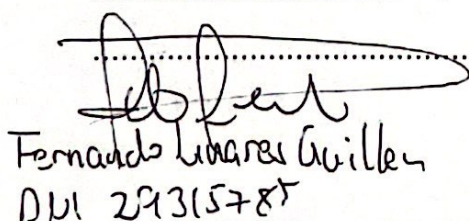 Fernando Linares Guillen
DNI 29315785